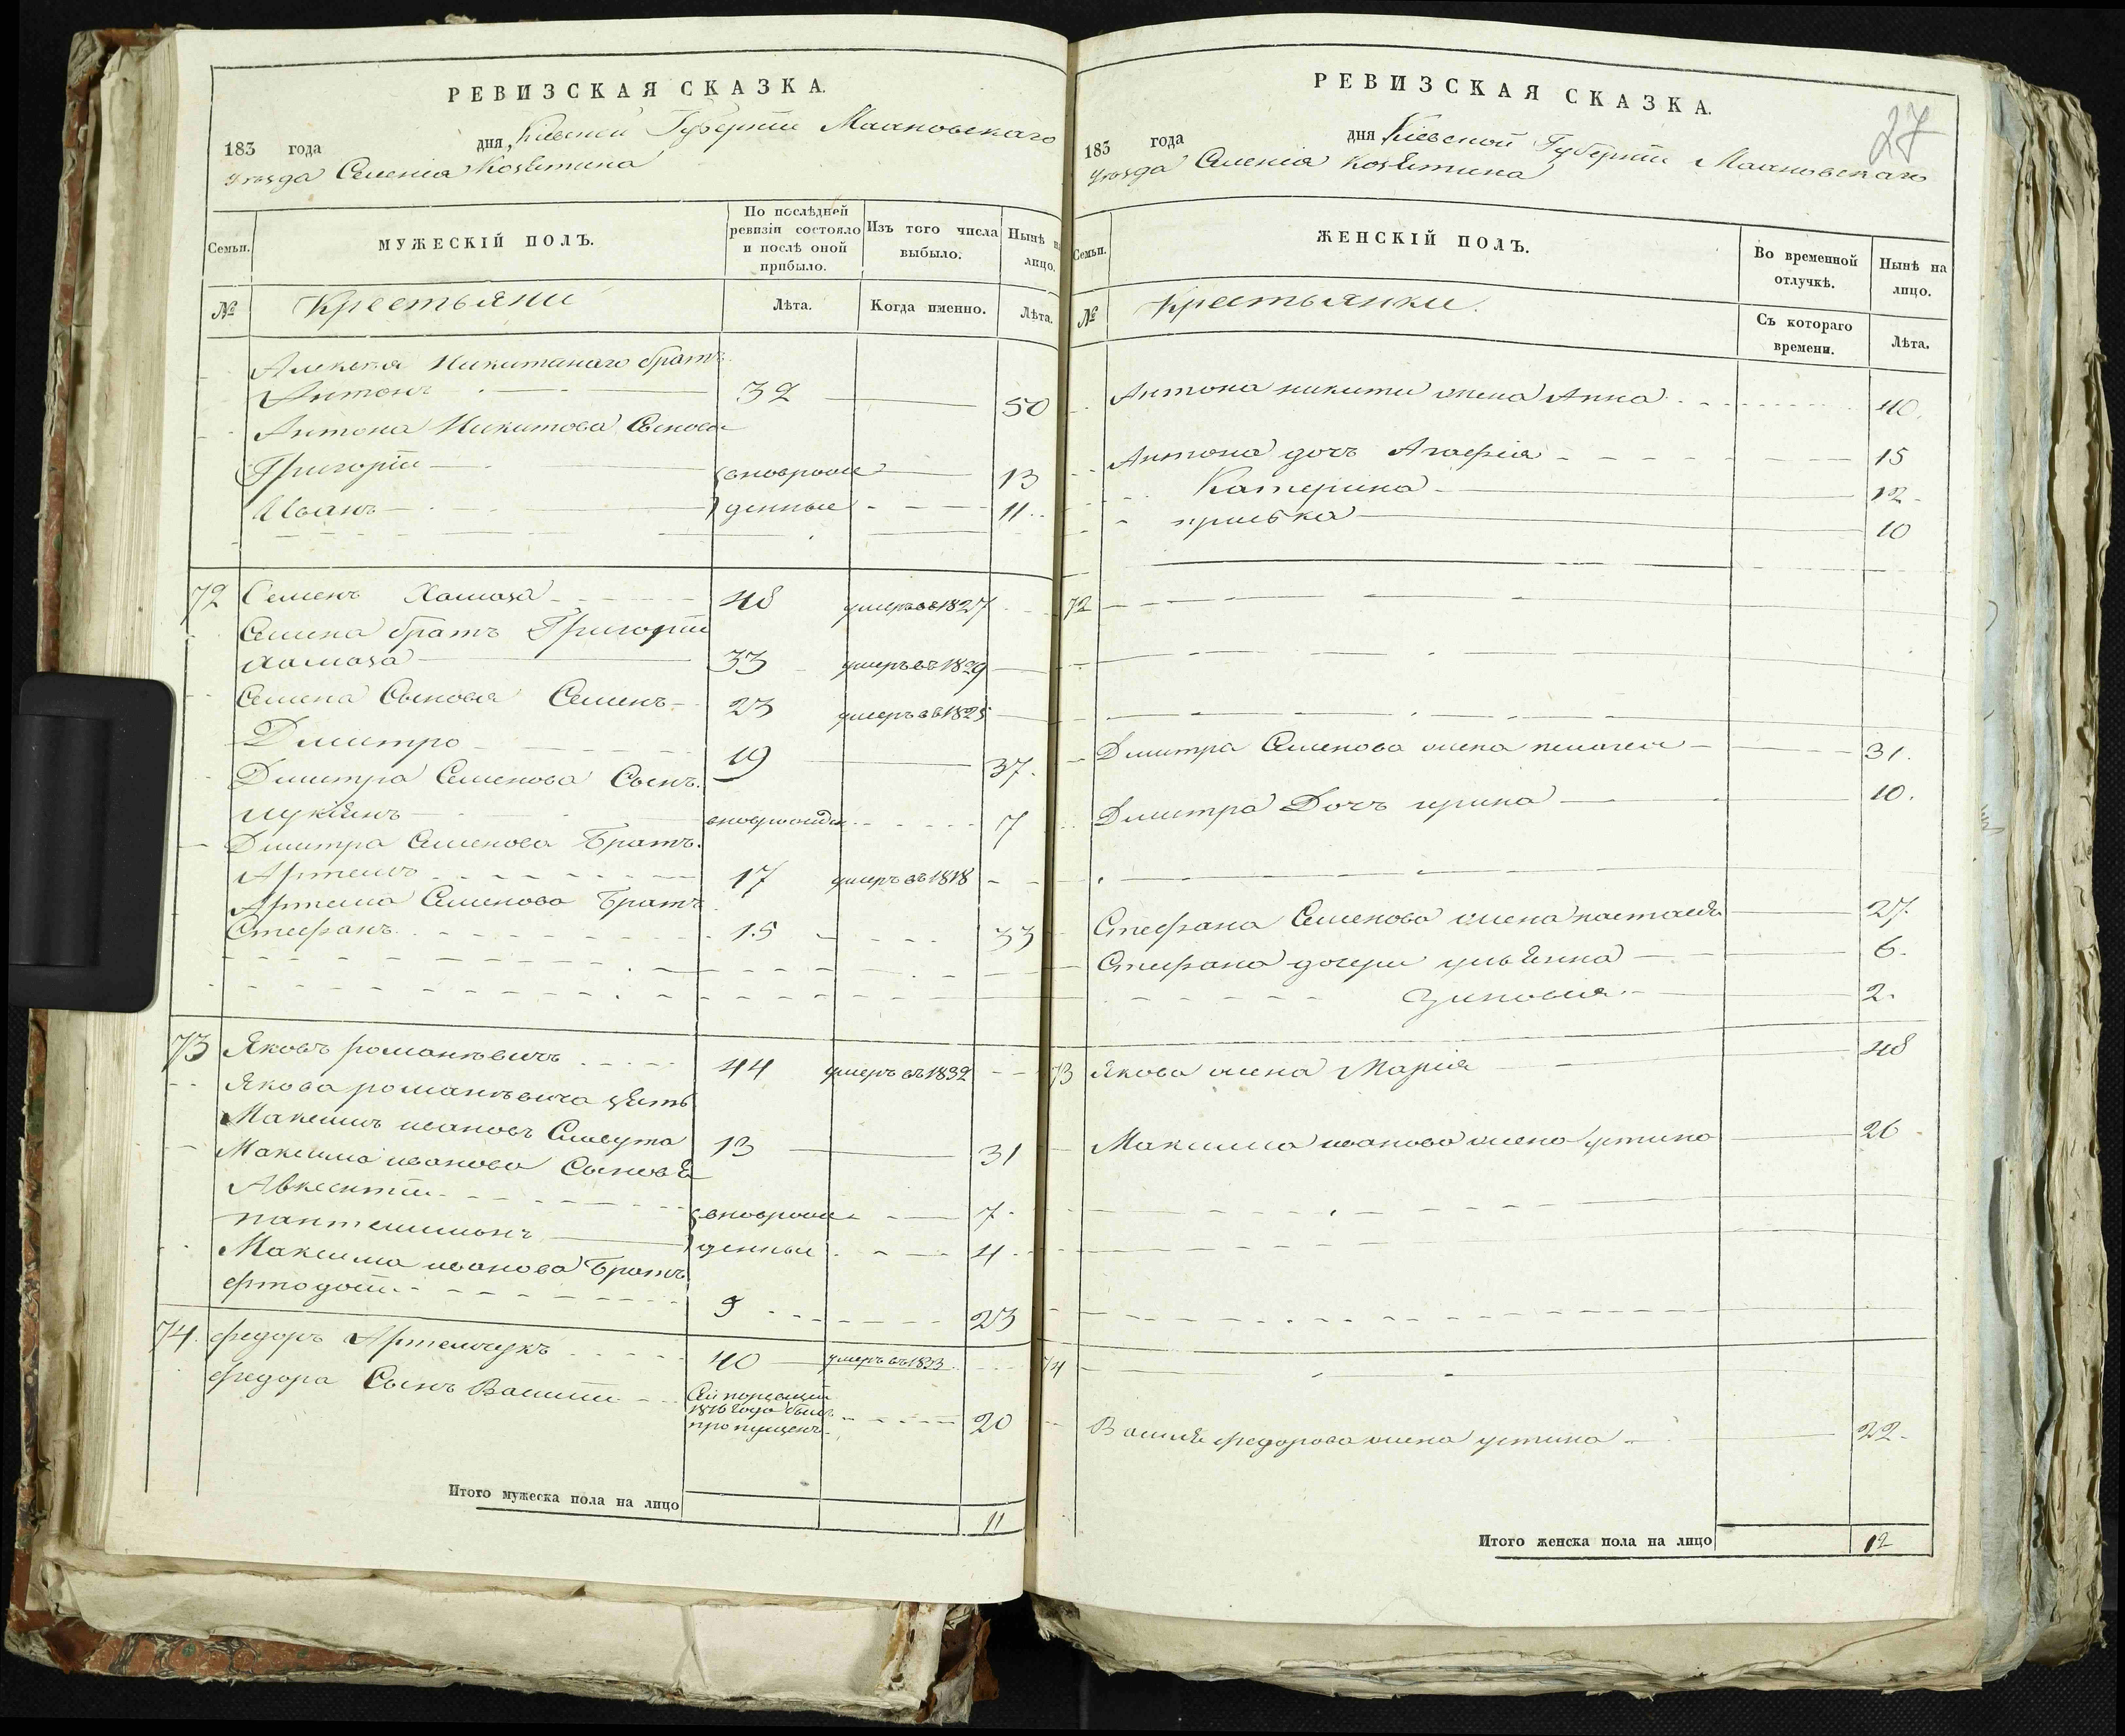 РЕВИЗСКАЯ СКАЗКА.
183 года дня Кіевской Губерніи Махновскаго
уезда Селенія Козятина
Семьи.
МУЖЕСКІЙ ПОЛЪ.
По послѣдней ревизіи состояло и послѣ оной прибыло.
Изъ того числа выбыло.
Нынѣ на лицо.
№
Крестьяни
Лѣта.
Когда именно.
Лѣта.
Алексея Никитинаго братъ
Антонъ 32 50
Антона Никитова Сынова
Григорій вноврож 13
Иванъ денные 11
72 Семенъ Хамаза 48 умеръ въ 1827
Семена братъ Григорій
Хамаза 33 умеръ въ 1829
Семена Сынова Семенъ 23 умеръ въ 1825
Дмитро 19 37
Дмитра Семенова Сынъ
лукіянъ вноврожден 7
Дмитра Семенова Братъ
Артемъ 17 умеръ въ 1818
Артема Семенова Братъ
Стефанъ 15 33
73 Яковъ романовичъ 44 умеръ въ 1832
Якова романовича зять
Максимъ ивановъ Славута 13 31
Максима иванова Сыновя
Авксентій вноврож 7
пантелимонъ денные 4
Максима иванова Братъ
фтодотій 5 23
74 федоръ Артемчукъ 40 умеръ въ 1833
федора Сынъ Василій
Сей по ревизіи
1816 года былъ
пропущенъ 20
Итого мужеска пола на лицо 11
РЕВИЗСКАЯ СКАЗКА.
27
183 года дня Кіевской Губерніи Махновскаго
уезда Селенія Козятина
Семьи.
ЖЕНСКІЙ ПОЛЪ.
Во временной отлучкѣ.
Нынѣ на лицо.
№
Крестьянки.
Съ котораго времени.
Лѣта.
Антона никити жена Анна 40
Антона дочъ Агафія 15
Катерина 12
приська 10
72
Дмитра Семенова жена пелагея 31
Дмитра Дочъ ирина 10
Стефана Семенова жена настасія 27
Стефана дочери ульяна 6
Зиновия 2
73 Якова жена Марія 48
Максима иванова жена устина 26
74
Василя федорова жена устина 22
Итого женска пола на лицо 12